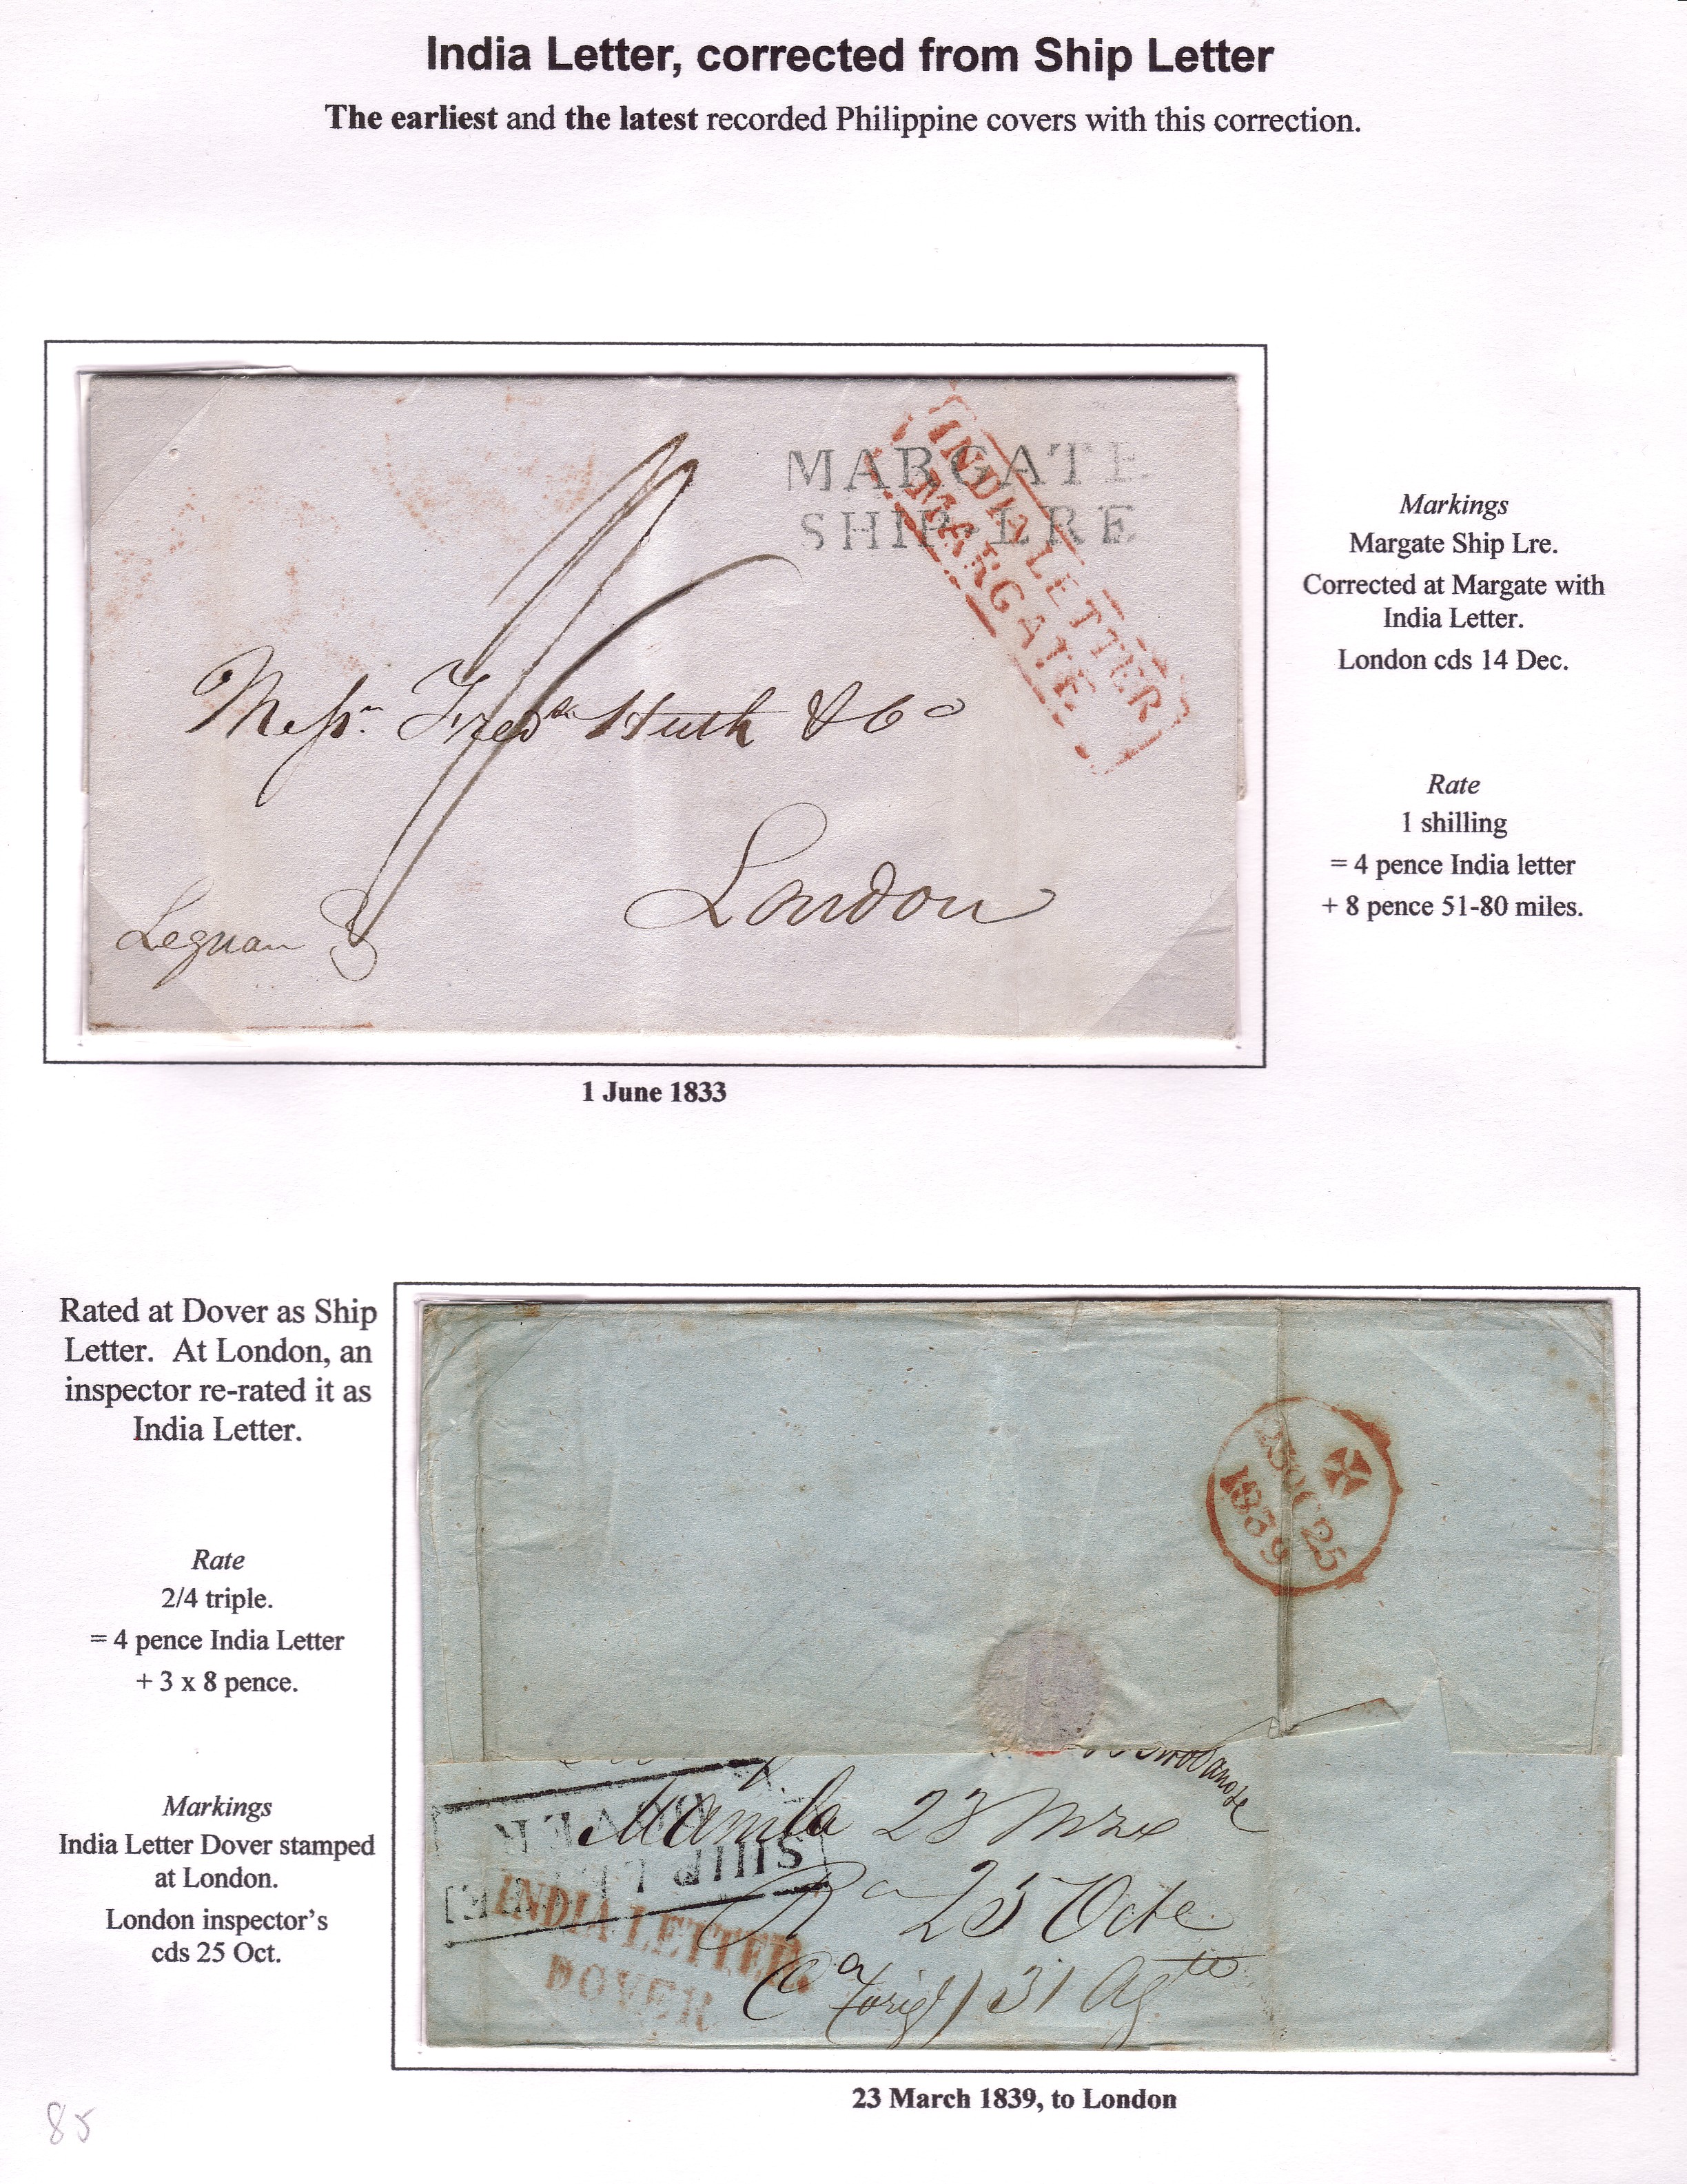 India Letter, corrected from Ship Letter
The earliest and the latest recorded Philippine covers with this correction.
MARGATE
SHIP-LRE
INDIA LETTER
MARGATE
Messrs. Fredk Huth & Co
London
Markings
Margate Ship Lre.
Corrected at Margate with
India Letter.
London cds 14 Dec.
Rate
1 shilling
= 4 pence India letter
+ 8 pence 51-80 miles.
1 June 1833
Rated at Dover as Ship
Letter. At London, an
inspector re-rated it as
India Letter.
Rate
2/4 triple.
= 4 pence India Letter
+ 3 x 8 pence.
Markings
India Letter Dover stamped
at London.
London inspector's
cds 25 Oct.
OC 25
1839
Manila 23 Mzo
DOVER
SHIP LETTER
INDIA LETTER
DOVER
Ra 25 Octe
31 Agto
23 March 1839, to London
85